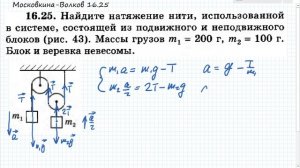 Московкина-Волков 16.25
16.25. Найдите натяжение нити, использованной
в системе, состоящей из подвижного и неподвижного
блоков (рис. 43). Массы грузов m₁ = 200 г, m₂ = 100 г.
Блок и веревка невесомы.
{ m₁a = m₁g - T    a = g - T/m₁
m₂ a/2 = 2T - m₂g
T T 2T
m₁
m₂
a
m₁g
m₂g
a/2